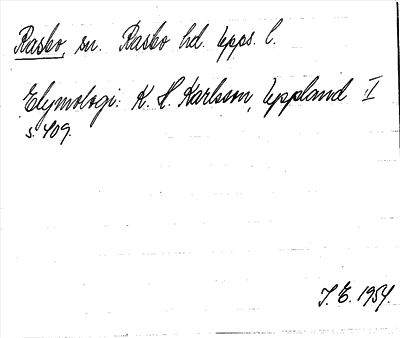 Rasbo, sn. Rasbo hd. Upps. l.
Etymologi: K. H. Karlsson, Uppland II
s. 409.
J. E. 1954.